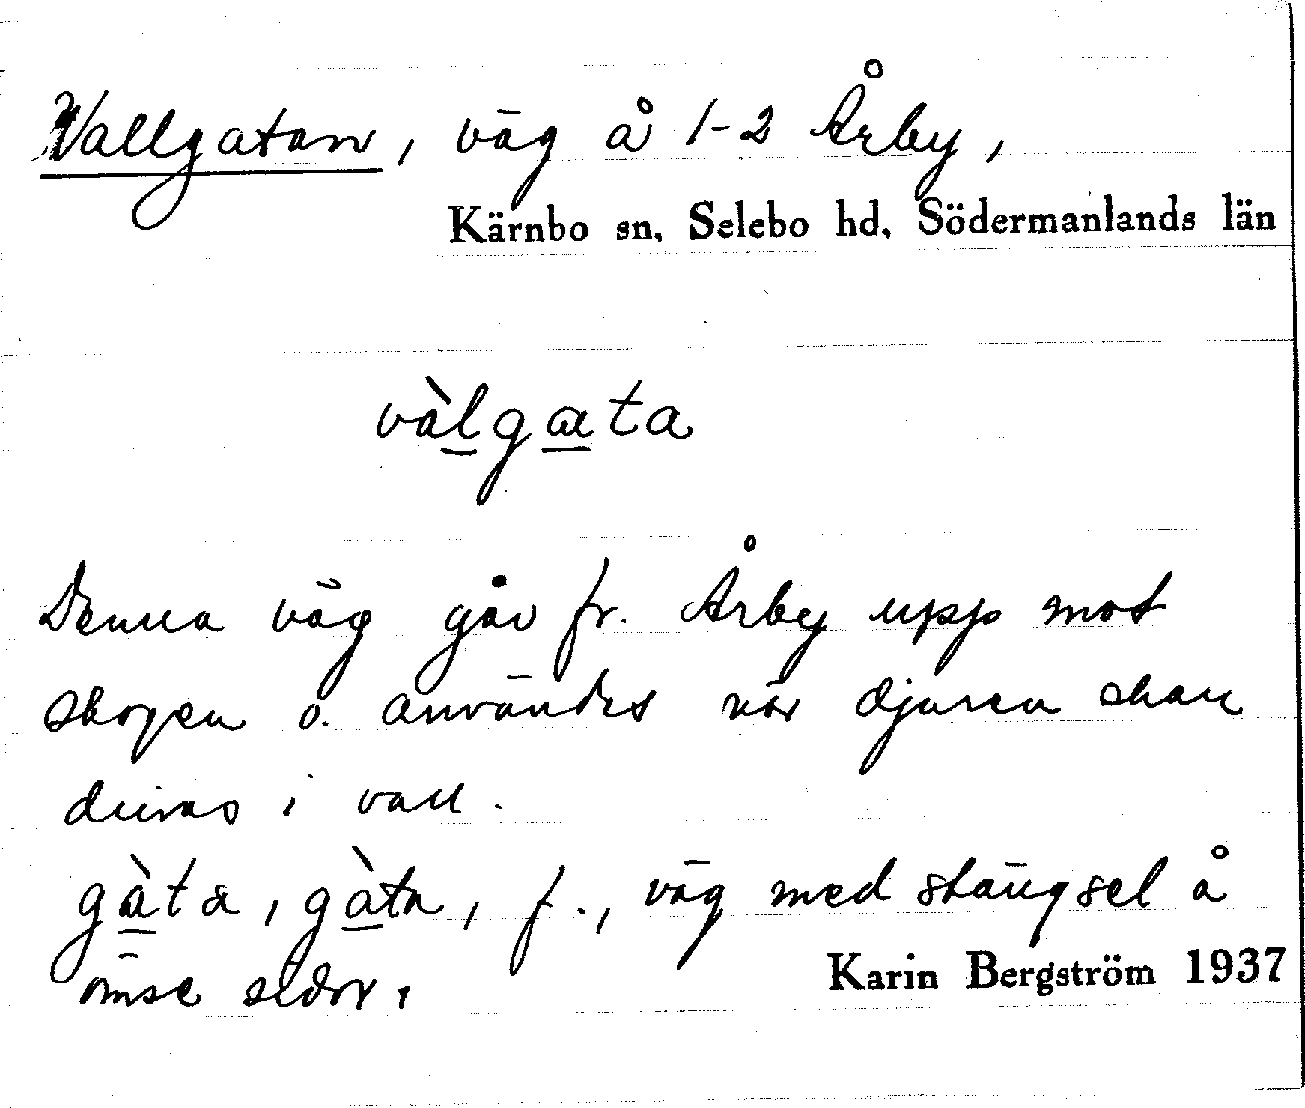 Vallgatan, väg å 1-2 Årby,
Kärnbo sn, Selebo hd, Södermanlands län
vàlgata
Denna väg går fr. Årby upp mot
skogen o. användes när djuren skall
drivas i vall.
gàta, gàta, f., väg med stängsel å
ömse sidor.
Karin Bergström 1937